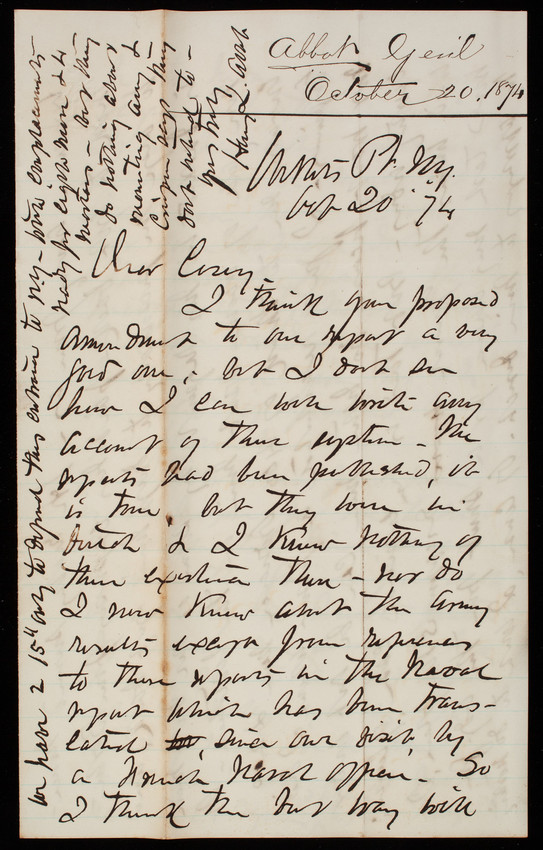 Abbot, Genl
October 20, 1874
Willets Pt. N.Y.
Oct 20 '74
Dear Casey,
I think your proposed
amendment to our report a very
good one; but I dont see
how I can write any
account of their system - The
reports had been published, it
is true but they were in
Dutch & I knew nothing of
their existence then - nor do
I now know about the Army
results except from references
to these reports in the Naval
report which has been trans-
lated since our visit, by
a French Naval Officer. So
I think the best way will
We have 2 15" only to defend this entrance to N.Y. - with emplacements
ready for eight more & 4
mortars - but they
do nothing about
mounting any &
Casgrain says they
dont intend to -
Yrs truly
Henry L. Abbot